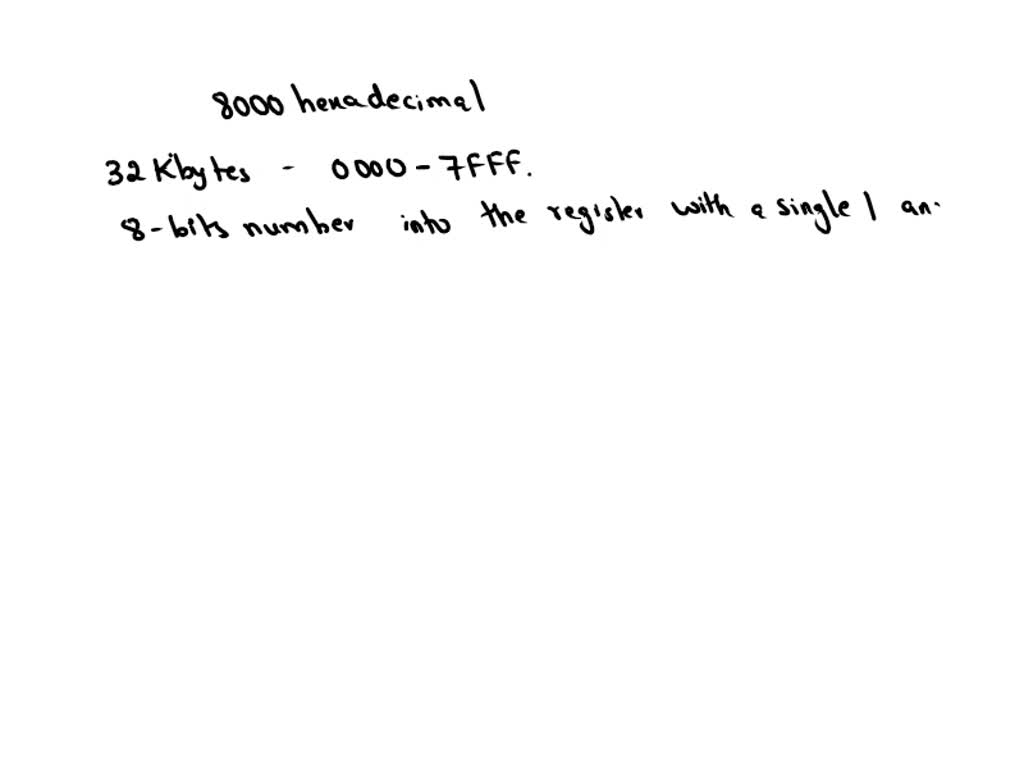 8000 hexadecimal
32 Kbytes - 0000 - 7FFF.
8-bits number into the register with a single 1 an.